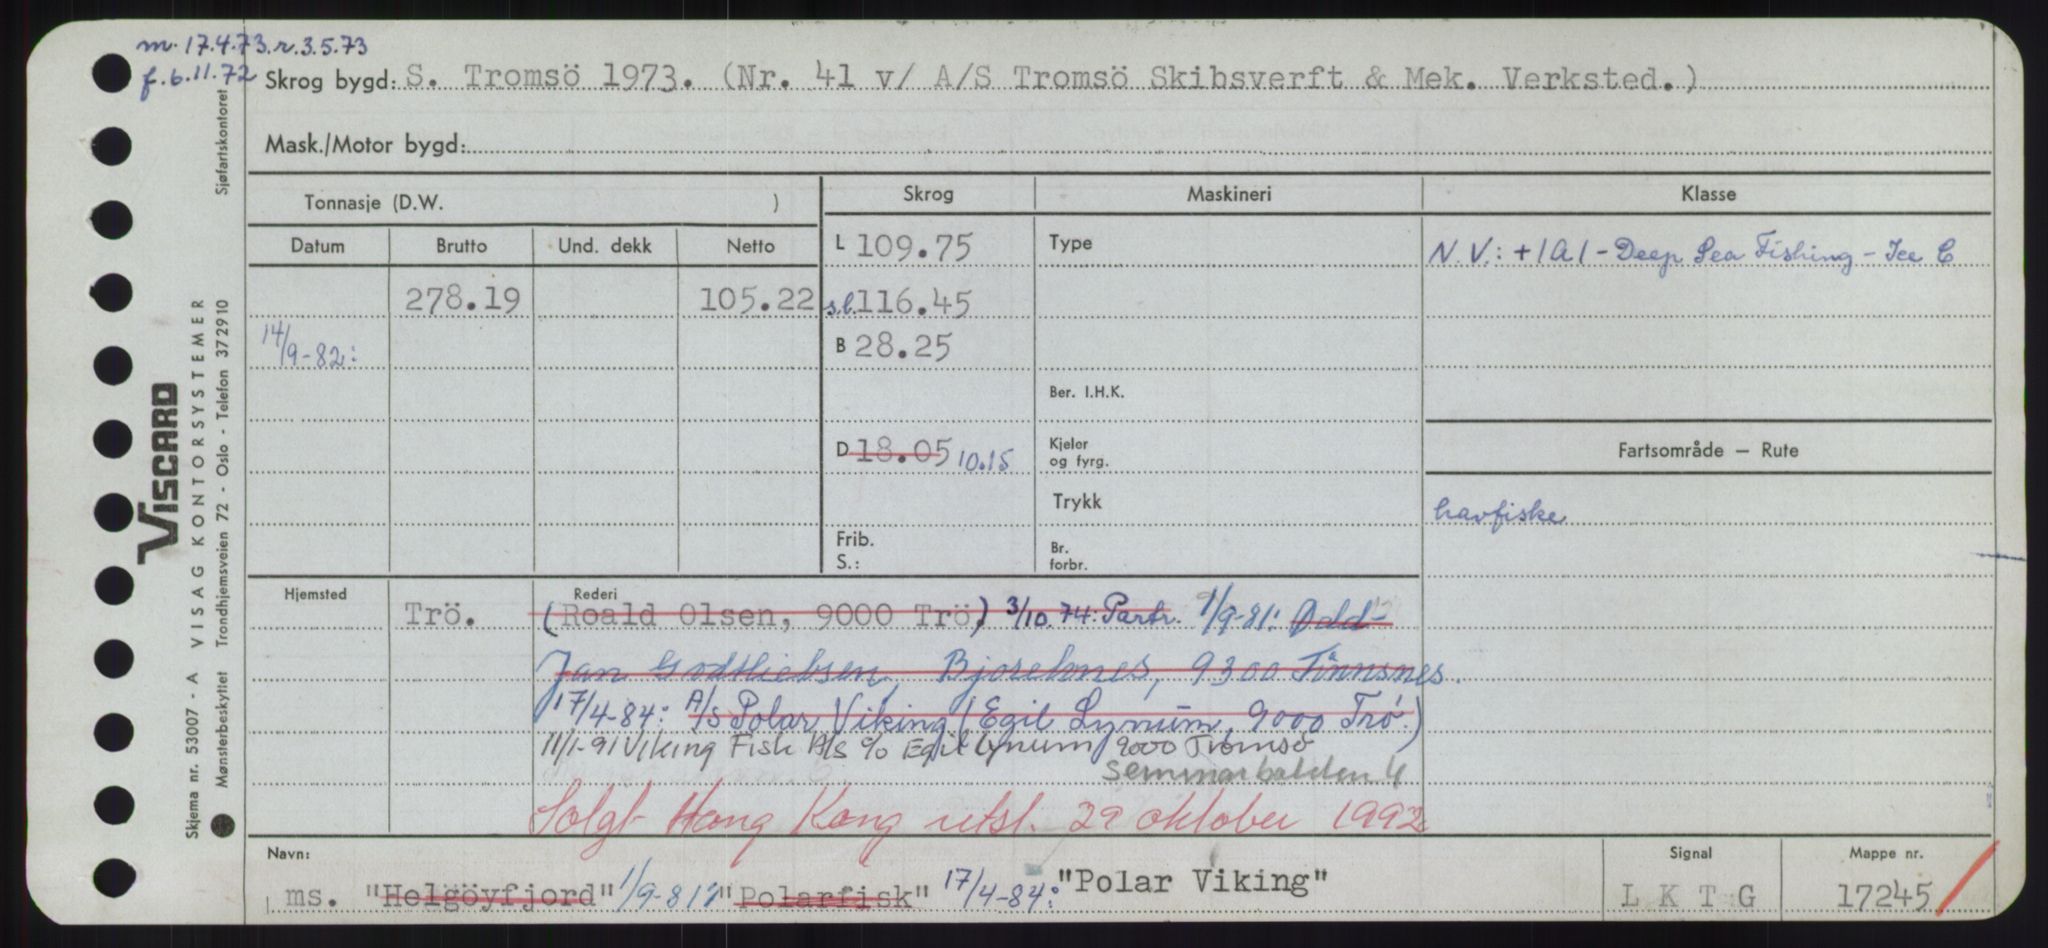 m. 17.4.73. r. 3.5.73
f. 6.11.72
Skrog bygd: S. Tromsö 1973. (Nr. 41 v/ A/S Tromsö Skibsverft & Mek. Verksted.)
Mask./Motor bygd:
Tonnasje (D.W. )
Skrog
Maskineri
Klasse
Datum
Brutto
Und. dekk
Netto
L 109.75
Type
N.V.: +1A1 - Deep Sea Fishing - Ice C
278.19
105.22
s.l. 116.45
14/9-82:
B 28.25
Ber. I.H.K.
D 18.05 10.15
Kjeler
og fyrg.
Fartsområde — Rute
Trykk
havfiske
Frib.
S.:
Br.
forbr.
Hjemsted
Trö.
Rederi
(Roald Olsen, 9000 Trö.) 3/10.74: Partr. 1/9-81: Odd-
Jan Godtliebsen, Bjorelvnes, 9300 Finnsnes.
17/4-84: A/S Polar Viking (Egil Lynum, 9000 Trö.)
11/1-91 Viking Fisk A/S c/o Egil Lynum 9000 Tromsö
4
Solgt Hong Kong utsl. 29 oktober 1992
Navn:
ms. "Helgöyfjord" 1/9-81: "Polarfisk" 17/4-84: "Polar Viking"
Signal
L K T G
Mappe nr.
17245
Skjema nr. 53007 - A VISAG KONTORSYSTEMER
Mønsterbeskyttet Trondhjemsveien 72 - Oslo - Telefon 372910
Sjøfartskontoret
VISCARD